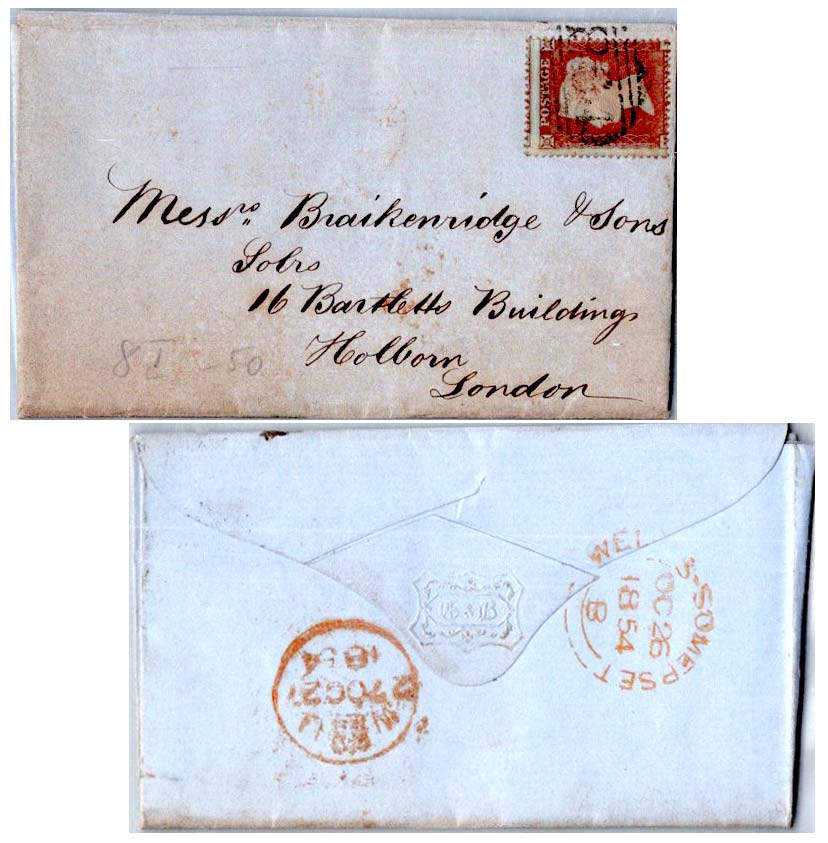 POSTAGE
Messrs. Braikenridge & Sons
Solrs
16 Bartletts Buildings
Holborn
London
8 I -50
WELLS-SOMERSET
OC 26
1854
B
27 OC 27
1854